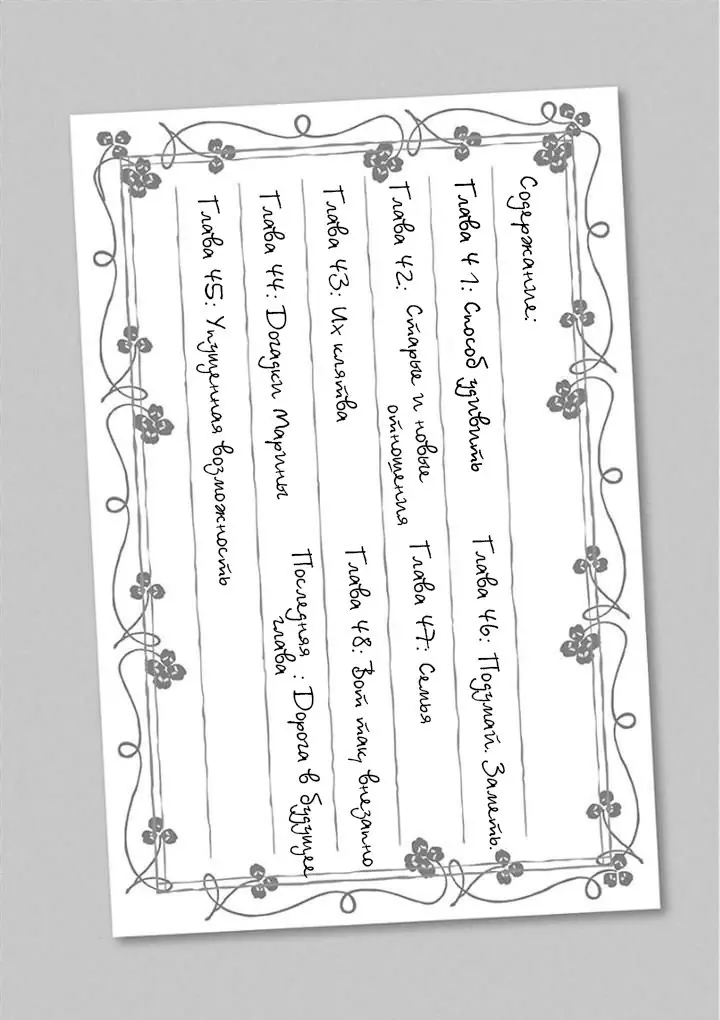 Содержание:
Глава 41: Способ удивить
Глава 42: Старые и новые
отношения
Глава 43: Их клятва
Глава 44: Догадки Марины
Глава 45: Упущенная возможность
Глава 46: Подумай. Заметь.
Глава 47: Семья
Глава 48: Вот так, внезапно
Последняя : Дорога в будущее
глава